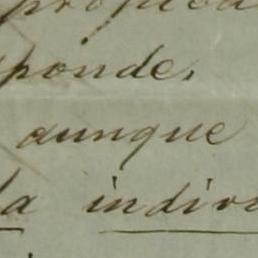 propied
ponde,
aunque
la indivi